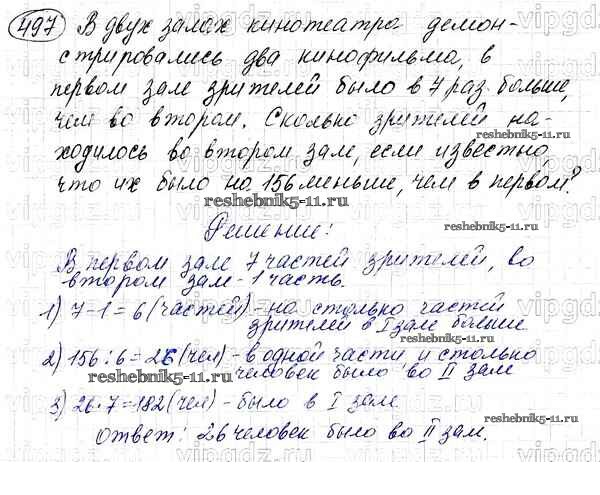 497) В двух залах кинотеатра демон-
стрировались два кинофильма, в
первом зале зрителей было в 7 раз больше,
чем во втором. Сколько зрителей на-
reshebnik5-11.ru
ходилось во втором зале, если известно
что их было на 156 меньше, чем в первом?
reshebnik5-11.ru
Решение:
reshebnik5-11.ru
В первом зале 7 частей зрителей, во
втором зале - 1 часть.
1) 7-1=6 (частей) - на столько частей
зрителей в I зале больше
2) 156:6=26 (чел) - в одной части и столько
reshebnik5-11.ru
человек было во II зале
3) 26·7=182 (чел) - было в I зале
reshebnik5-11.ru
Ответ: 26 человек было во II зале.